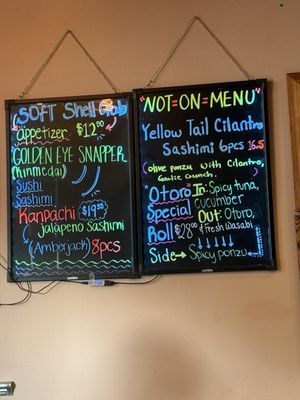 SOFT Shell Crab
appetizer $12.00
GOLDEN EYE SNAPPER
(kinmedai)
Sushi
Sashimi
Kanpachi $19.50
jalapeño Sashimi
(Amberjack) 8pcs
"NOT=ON=MENU"
Yellow Tail Cilantro
Sashimi 6pcs 16.5
(olive ponzu with Cilantro,
Garlic Crunch.
"Otoro" In: Spicy tuna,
Special cucumber
Roll Out: Otoro,
$28.00 & Fresh Wasabi
Side→ Spicy ponzu